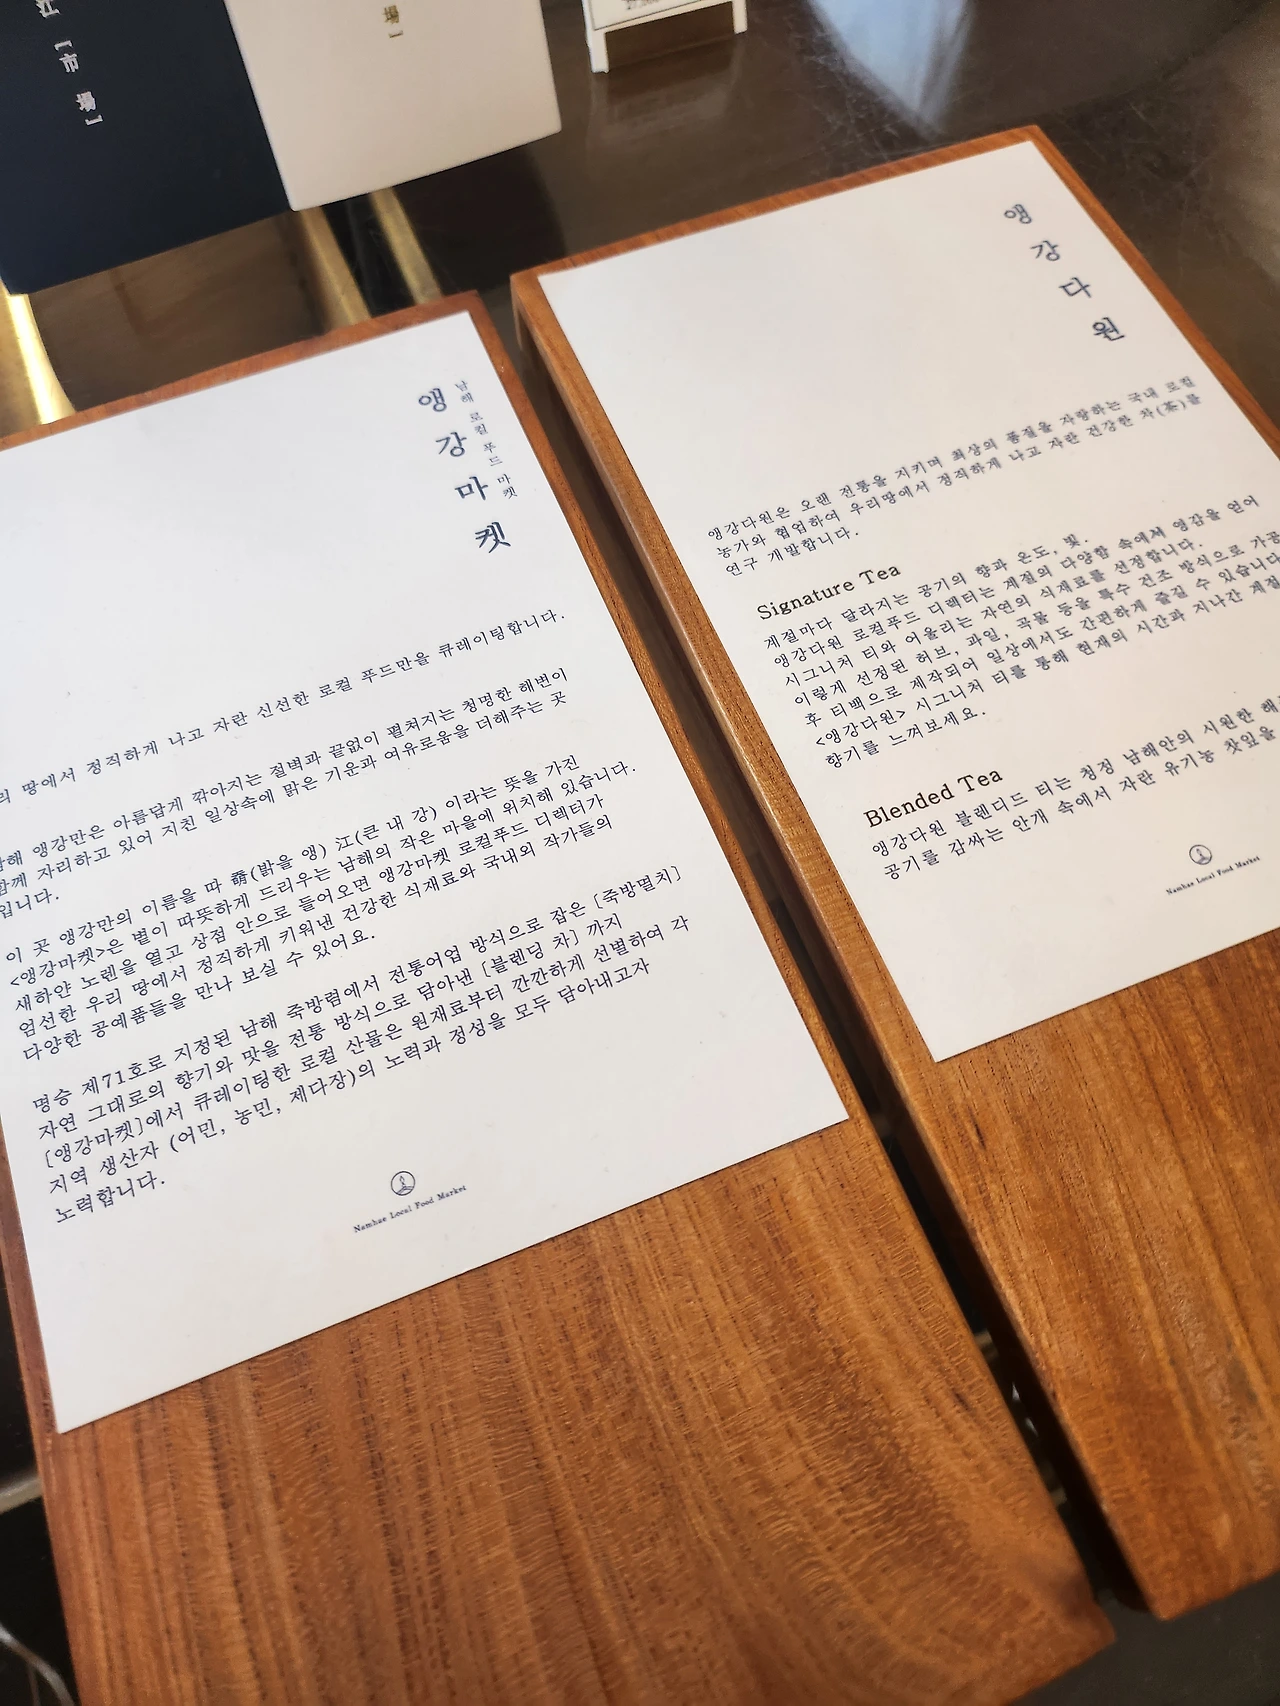 江[市場]
場]
앵강마켓
남해 로컬 푸드 마켓
땅에서 정직하게 나고 자란 신선한 로컬 푸드만을 큐레이팅합니다.
앵강만은 아름답게 깎아지는 절벽과 끝없이 펼쳐지는 청명한 해변이
함께 자리하고 있어 지친 일상속에 맑은 기운과 여유로움을 더해주는 곳
입니다.
이 곳 앵강만의 이름을 따 (밝을 앵) 江(큰 내 강) 이라는 뜻을 가진
<앵강마켓>은 볕이 따뜻하게 드리우는 남해의 작은 마을에 위치해 있습니다.
새하얀 노렌을 열고 상점 안으로 들어오면 앵강마켓 로컬푸드 디렉터가
엄선한 우리 땅에서 정직하게 키워낸 건강한 식재료와 국내외 작가들의
다양한 공예품들을 만나 보실 수 있어요.
명승 제71호로 지정된 남해 죽방렴에서 전통어업 방식으로 잡은 [죽방멸치]
자연 그대로의 향기와 맛을 전통 방식으로 담아낸 [블렌딩 차] 까지
[앵강마켓]에서 큐레이팅한 로컬 산물은 원재료부터 깐깐하게 선별하여 각
지역 생산자 (어민, 농민, 제다장)의 노력과 정성을 모두 담아내고자
노력합니다.
Namhae Local Food Market
앵강다원
앵강다원은 오랜 전통을 지키며 최상의 품질을 자랑하는 국내 로컬
농가와 협업하여 우리땅에서 정직하게 나고 자란 건강한 차(茶)를
연구 개발합니다.
Signature Tea
계절마다 달라지는 공기의 향과 온도, 빛.
앵강다원 로컬푸드 디렉터는 계절의 다양함 속에서 영감을 얻어
시그니처 티와 어울리는 자연의 식재료를 선정합니다.
이렇게 선정된 허브, 과일, 곡물 등을 특수 건조 방식으로 가공
후 티백으로 제작되어 일상에서도 간편하게 즐길 수 있습니다
<앵강다원> 시그니처 티를 통해 현재의 시간과 지나간 계절
향기를 느껴보세요.
Blended Tea
앵강다원 블렌디드 티는 청정 남해안의 시원한
공기를 감싸는 안개 속에서 자란 유기농 찻잎을
Namhae Local Food Market